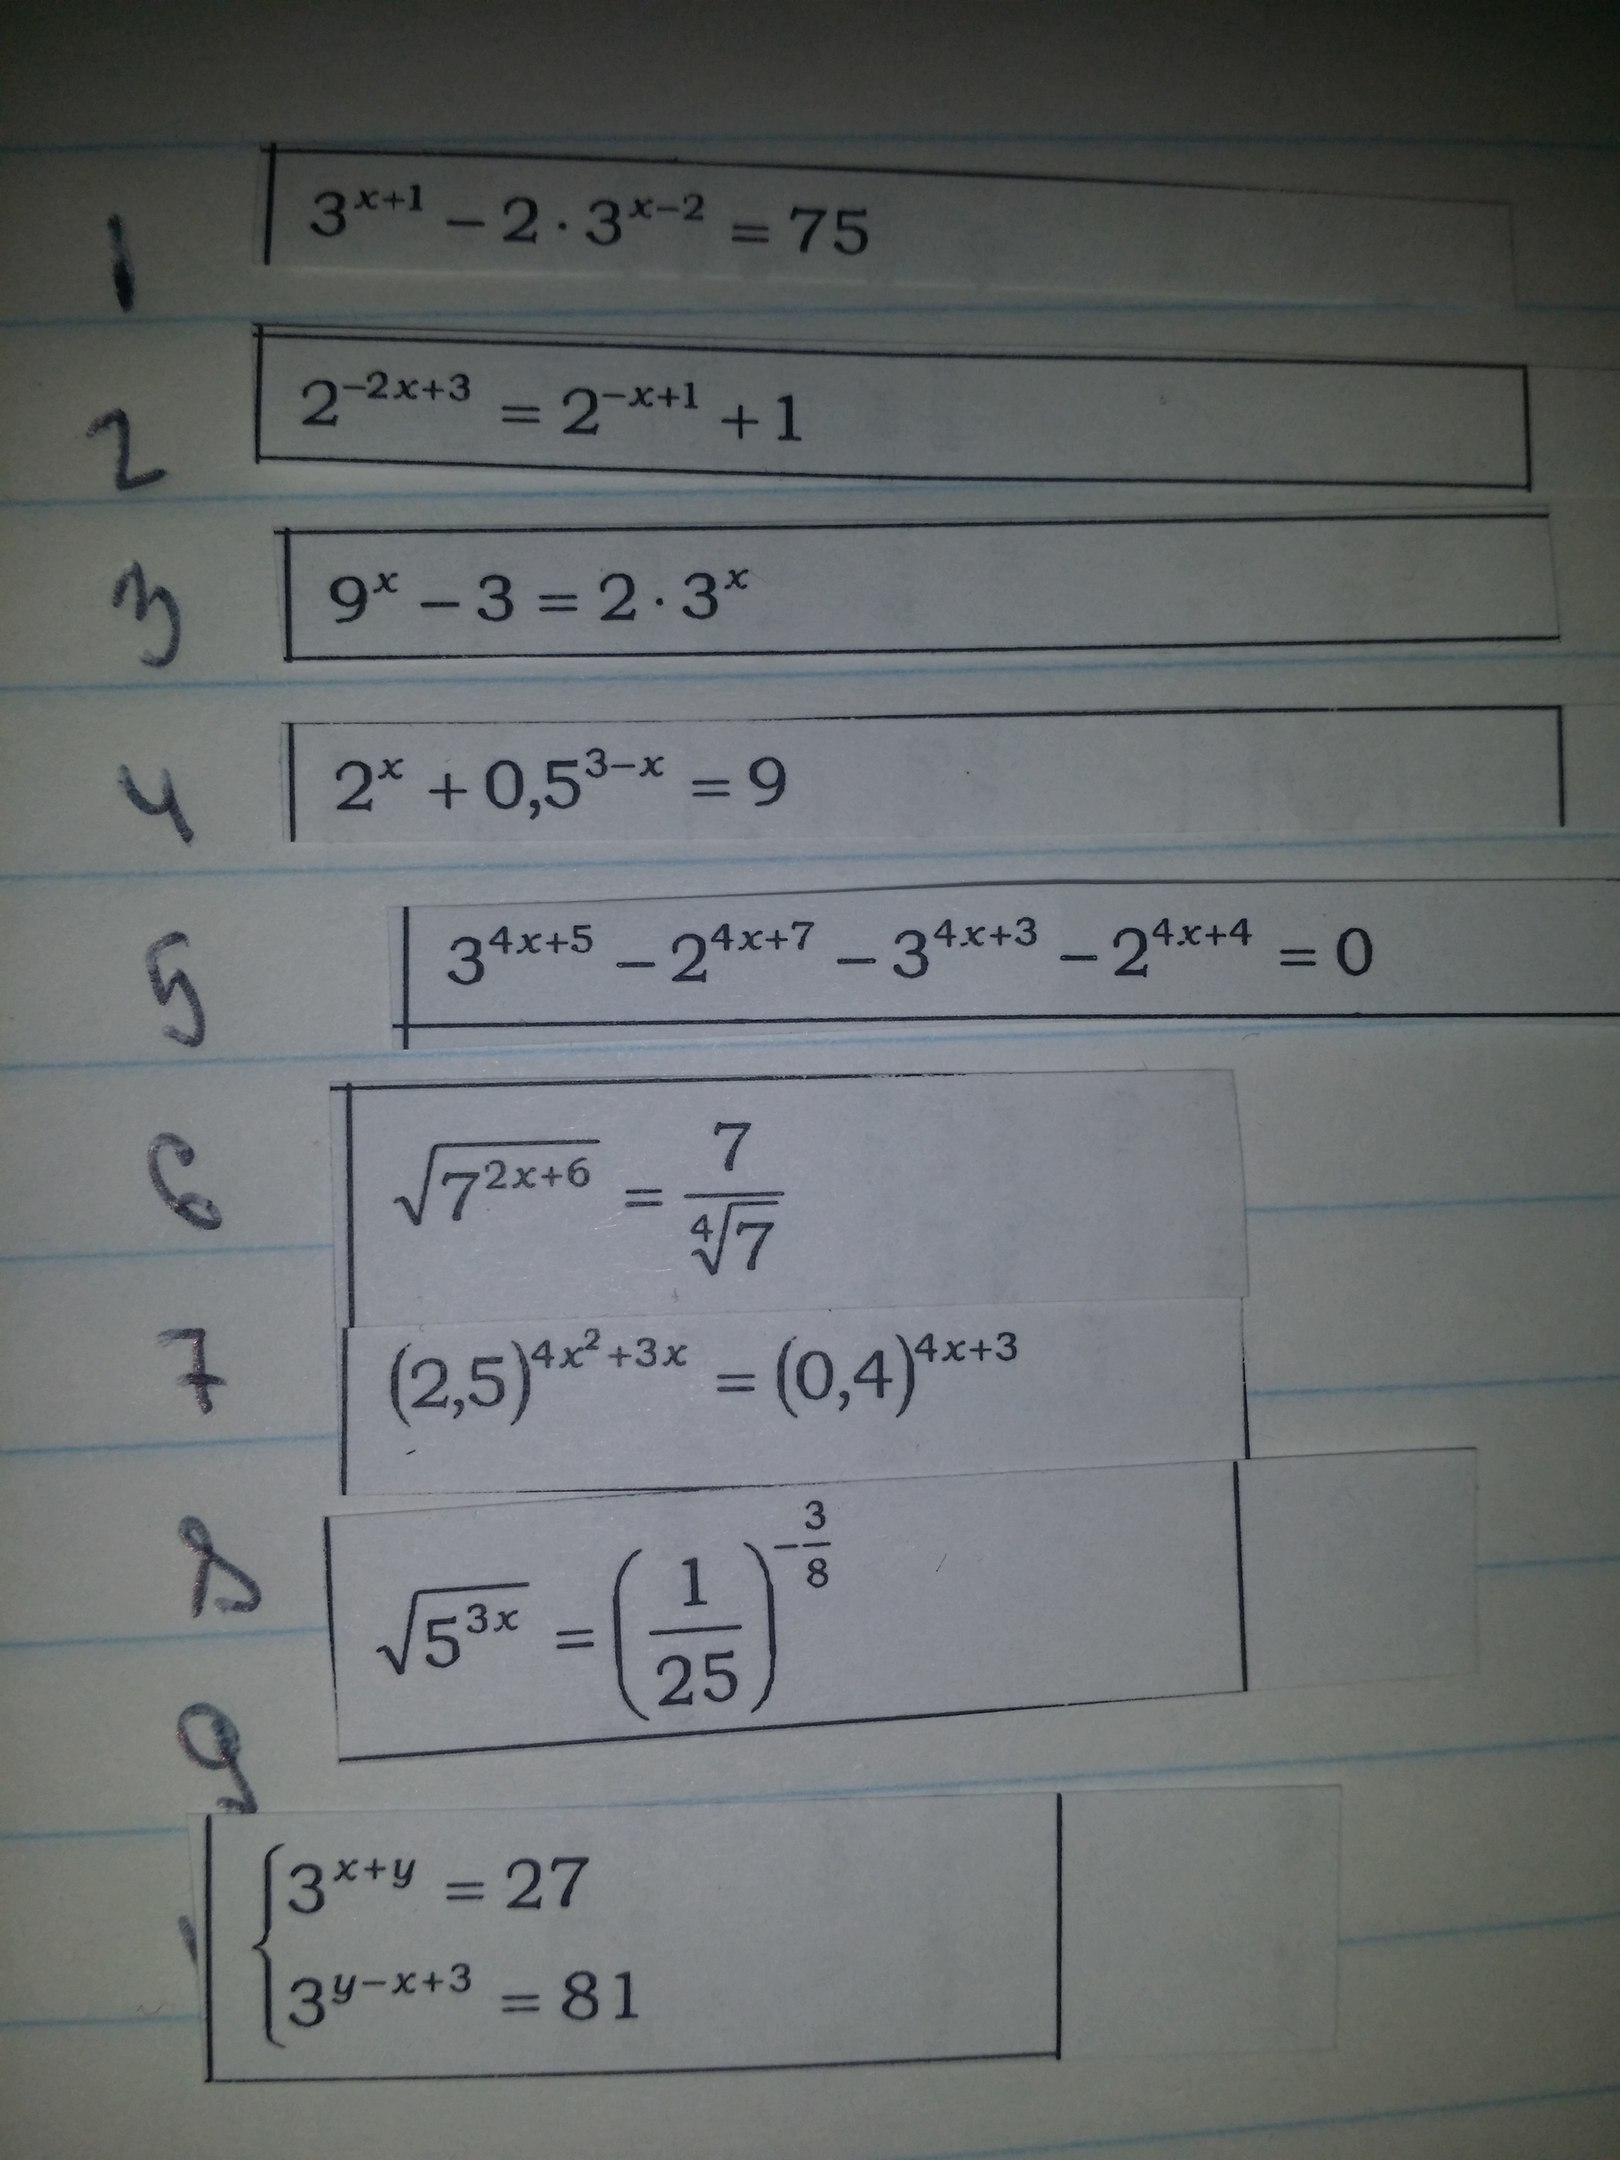 1
3^{x+1} − 2 · 3^{x−2} = 75
2
2^{−2x+3} = 2^{−x+1} + 1
3
9^x − 3 = 2 · 3^x
4
2^x + 0,5^{3−x} = 9
5
3^{4x+5} − 2^{4x+7} − 3^{4x+3} − 2^{4x+4} = 0
6
√(7^{2x+6}) = 7/∜7
7
(2,5)^{4x²+3x} = (0,4)^{4x+3}
8
√(5^{3x}) = (1/25)^{−3/8}
9
{3^{x+y} = 27
3^{y−x+3} = 81